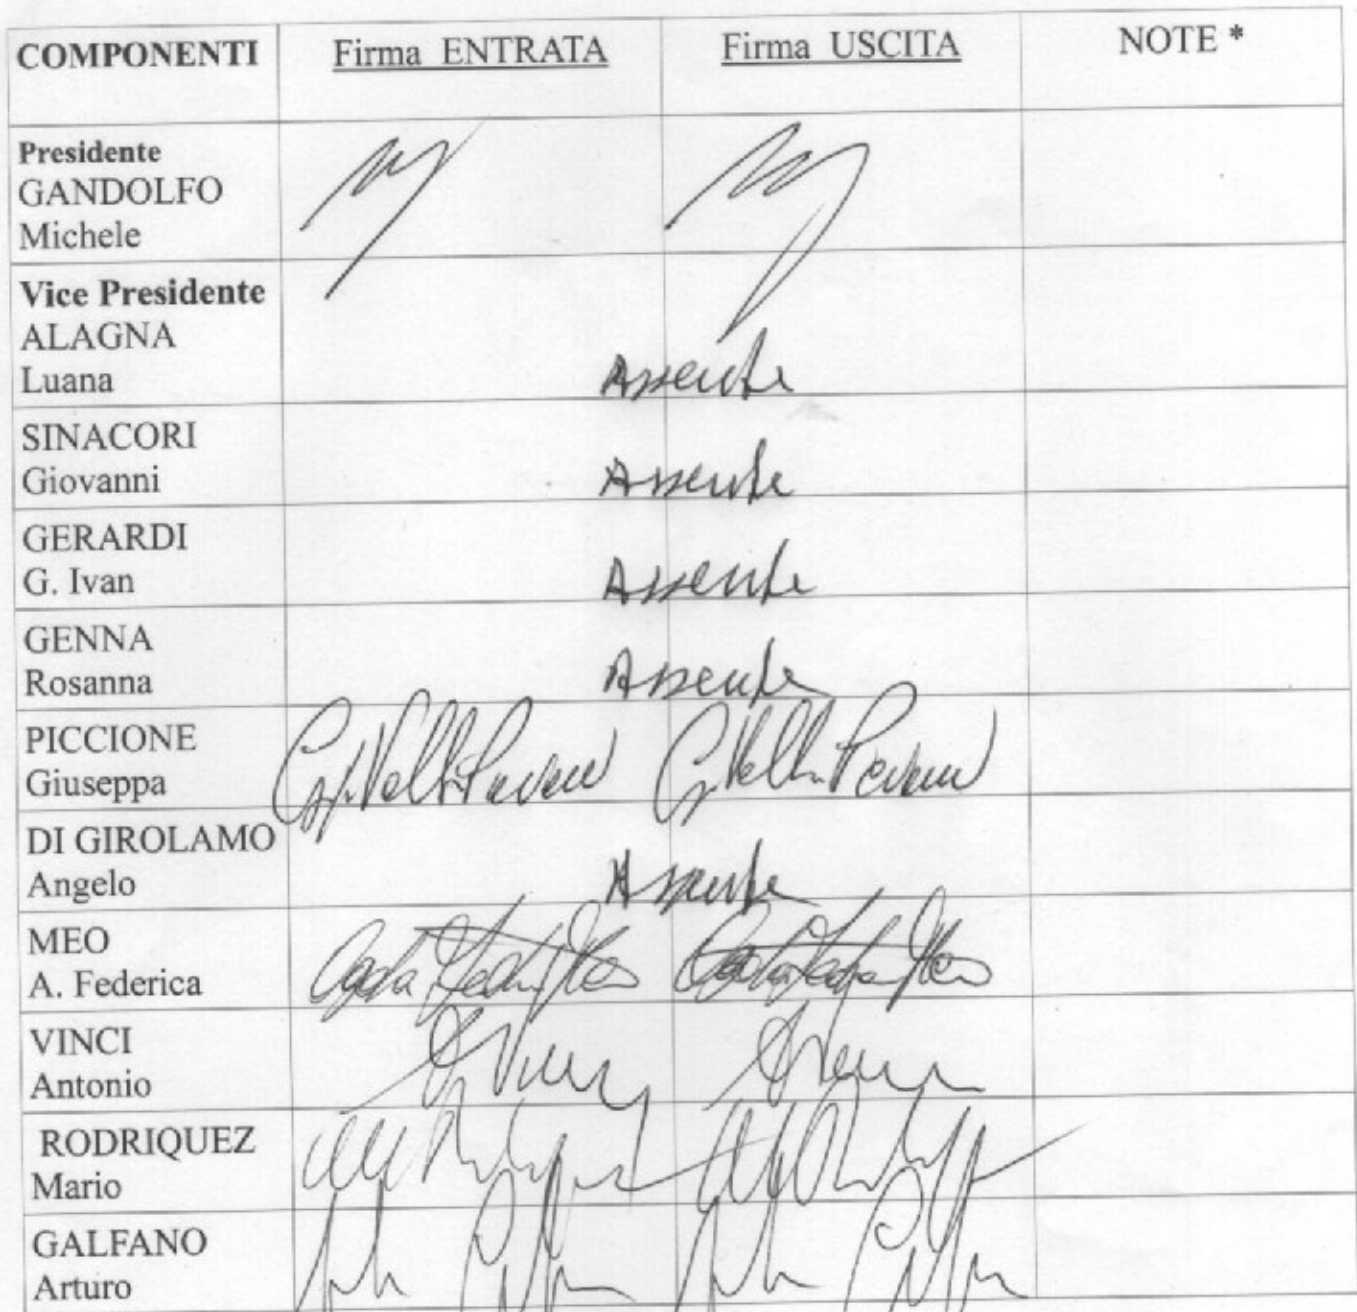 COMPONENTI Firma ENTRATA Firma USCITA NOTE *
Presidente
GANDOLFO
Michele
Vice Presidente
ALAGNA
Luana Assente
SINACORI
Giovanni Assente
GERARDI
G. Ivan Assente
GENNA
Rosanna Assente
PICCIONE
Giuseppa
DI GIROLAMO
Angelo Assente
MEO
A. Federica
VINCI
Antonio
RODRIQUEZ
Mario
GALFANO
Arturo